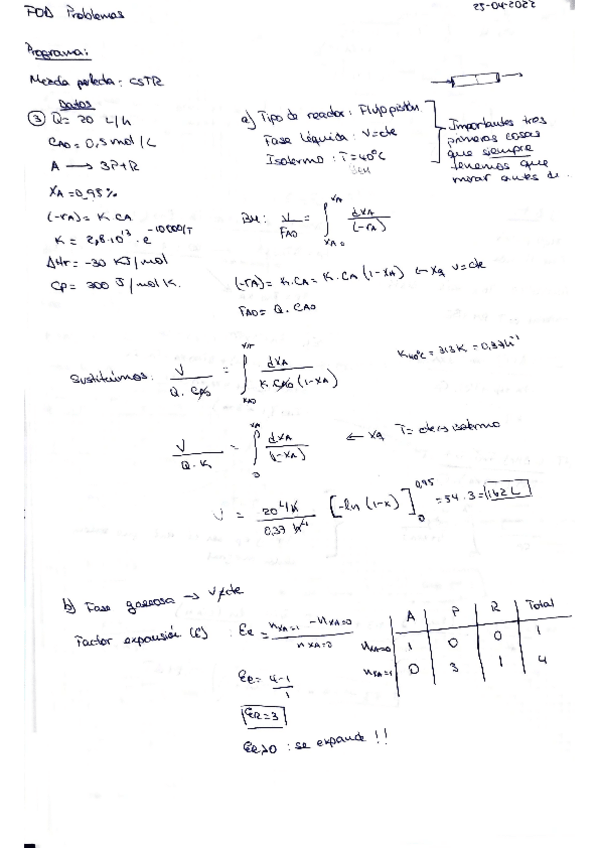 FOD Problemas
25-04-2022
Programa:
Mezcla perfecta: CSTR
Datos
③ Q= 20 L/h
CA0 = 0,5 mol/L
A → 3P+R
XA = 0,95%
(-rA) = K CA
K = 2,8·10^13 · e^-10000/T
ΔHr = -30 KJ/mol
Cp = 300 J/mol K.
a) Tipo de reactor: Flujo pistón
Fase líquida: V=cte
Isotermo: T=40ºC
Importantes tres
primeras cosas
que siempre
tenemos que
mirar antes de.
BM: V/FA0 = ∫ XA0 XA dXA/(-rA)
(-rA) = K·CA = K·CA (1-XA) ← xq V=cte
FA0 = Q·CA0
K40ºC = 313K = 0,37h^-1
Sustituimos: V/Q·CA0 = ∫ XA0 dXA/K·CA0 (1-XA)
V/Q·K = ∫ 0 XA dXA/(1-XA) ← xq T= cte
V = 20 L/h / 0,37 h^-1 [-ln (1-x)] 0 0,95 = 54 · 3 = 162 L
b) Fase gaseosa → V≠cte
Factor expansión (E): ER = nXA=1 - nXA=0 / nXA=0
A P R Total
nXA=0 1 0 0 1
nXA=1 0 3 1 4
ER = 4-1/1
ER=3
ER>0 : se expande !!